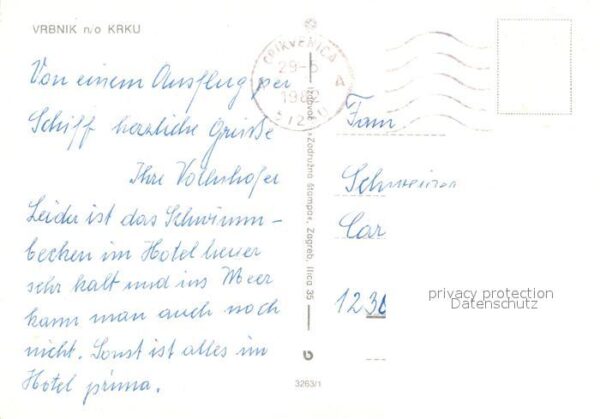 VRBNIK n/o KRKU
Von einem Ausflug per
Schiff herzliche Grüße
Ihre
Leider ist das Schwimm-
becken im Hotel heuer
sehr kalt und ins Meer
kann man auch noch
nicht. Sonst ist alles im
Hotel prima.
CRIKVENICA
29-5
A
51260
Izdavač »Zadružna štampa«, Zagreb, Ilica 35
3263/1
Fam
Car
1230
privacy protection
Datenschutz